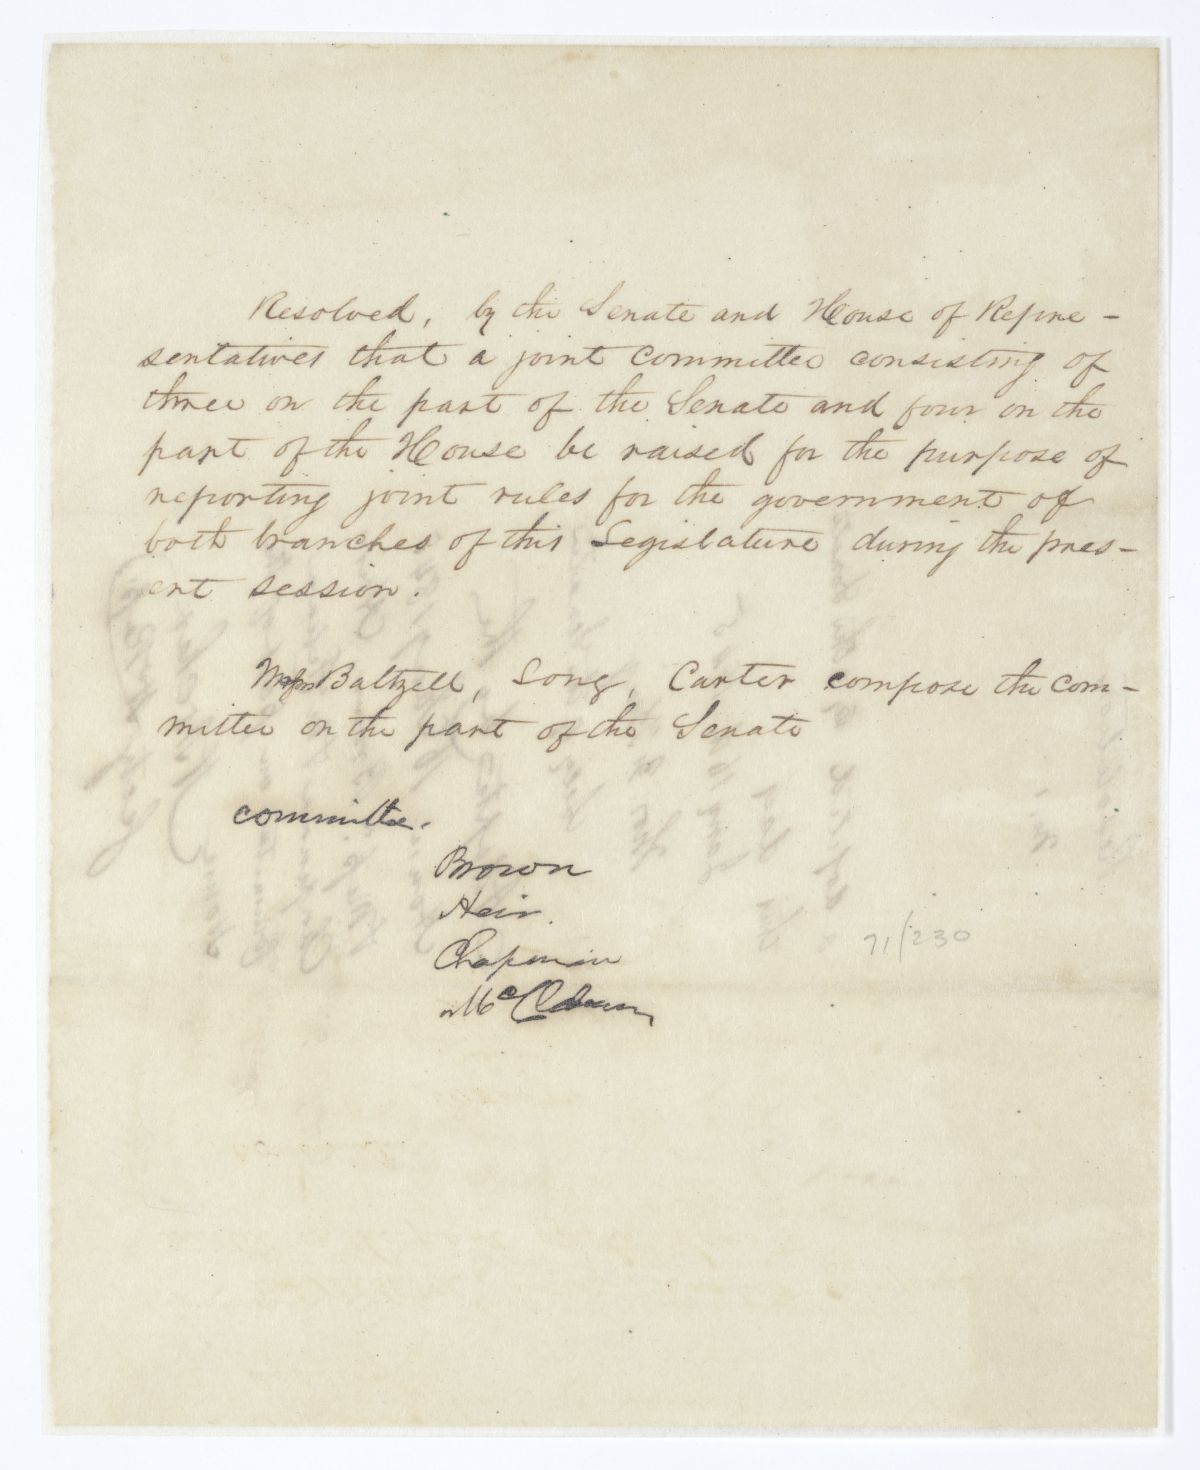 Resolved, by the Senate and House of Repre-
sentatives that a joint committee consisting of
three on the part of the Senate and four on the
part of the House be raised for the purpose of
reporting joint rules for the government of
both branches of this Legislature during the pres-
ent session.
Messrs Baltzell, Long, Carter compose the com-
mittee on the part of the Senate
committee.
Brown
Heir.
Chapman
71/230